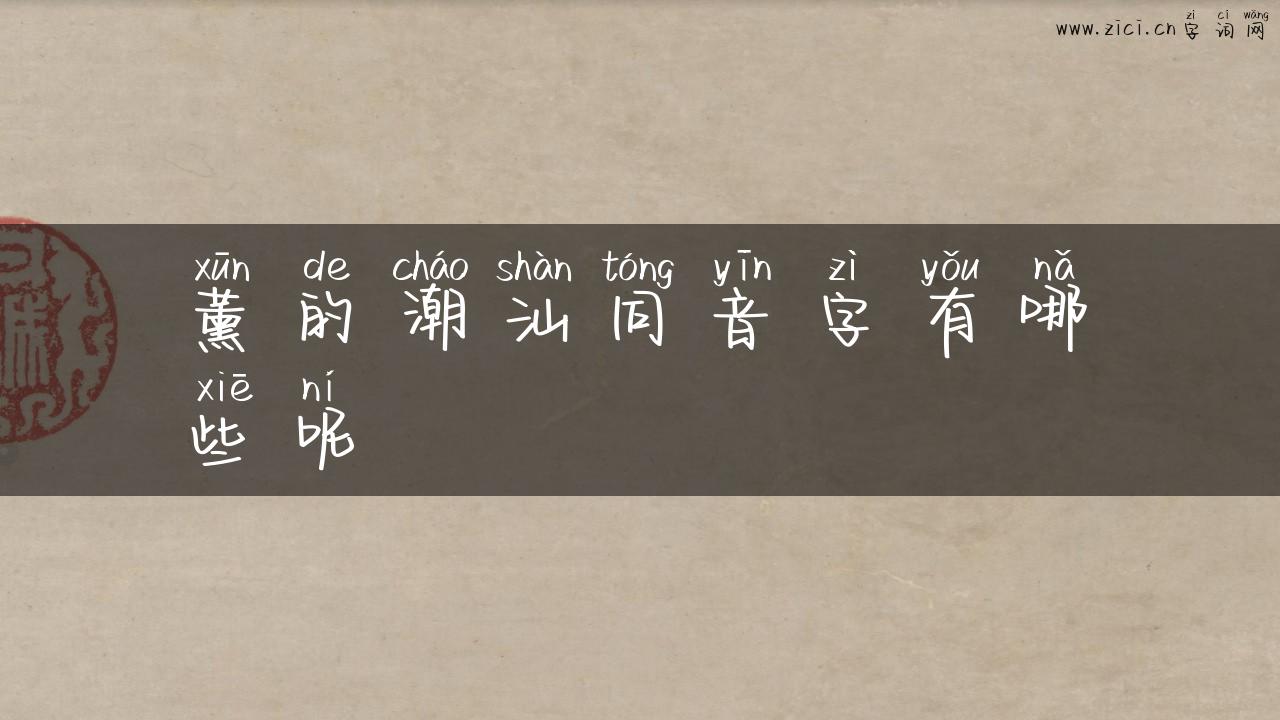 zì cí wǎng
www.zici.cn字词网
xūn de cháo shàn tóng yīn zì yǒu nǎ
薰的潮汕同音字有哪
xiē ní
些呢